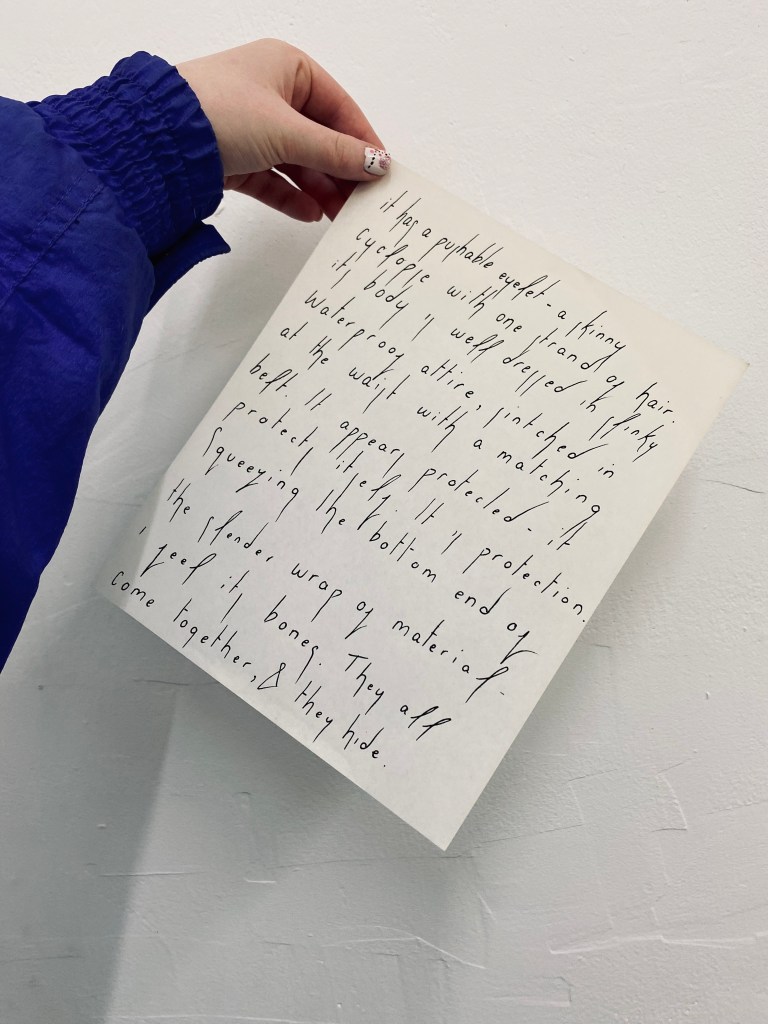 it has a pushable eyelet - a skinny
cyclopse with one strand of hair.
its body is well dressed in slinky
waterproof attire, sintched in
at the waist with a matching
belt. It appears protected - it
protects itself. It is protection.
Squeezing the bottom end of
the slender wrap of material -
i feel its bones. They all
come together, & they hide.